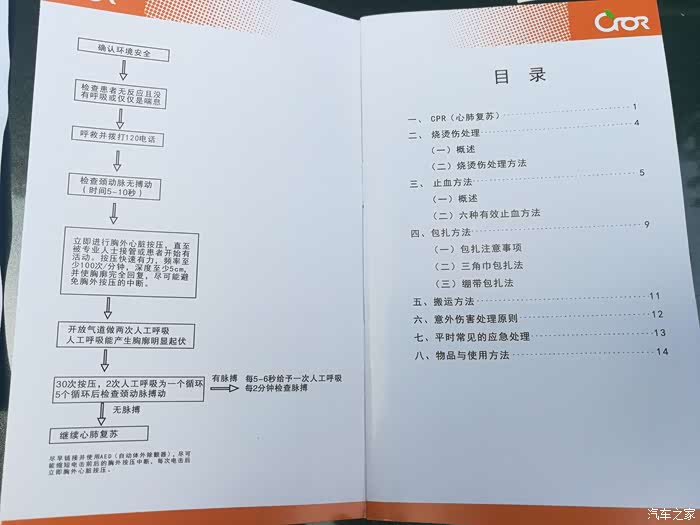 确认环境安全
检查患者无反应且没
有呼吸或仅仅是喘息
呼救并拨打120电话
检查颈动脉无搏动
(时间5-10秒)
立即进行胸外心脏按压，直至
被专业人士接管或患者开始有
活动。按压快速有力，频率至
少100次/分钟，深度至少5cm，
并使胸廓完全回复，尽可能避
免胸外按压的中断。
开放气道做两次人工呼吸
人工呼吸能产生胸廓明显起伏
30次按压，2次人工呼吸为一个循环
5个循环后检查颈动脉搏动
有脉搏
每5-6秒给予一次人工呼吸
每2分钟检查脉搏
无脉搏
继续心肺复苏
尽早链接并使用AED（自动体外除颤器），尽可
能缩短电击前后的胸外按压中断，每次电击后
立即胸外心脏按压。
CFOR
目 录
一、 CPR（心肺复苏） 1
二、 烧烫伤处理 4
（一）概述
（二）烧烫伤处理方法
三、 止血方法 5
（一）概述
（二）六种有效止血方法
四、包扎方法 9
（一）包扎注意事项
（二）三角巾包扎法
（三）绷带包扎法
五、搬运方法 11
六、意外伤害处理原则 12
七、平时常见的应急处理 13
八、物品与使用方法 14
汽车之家